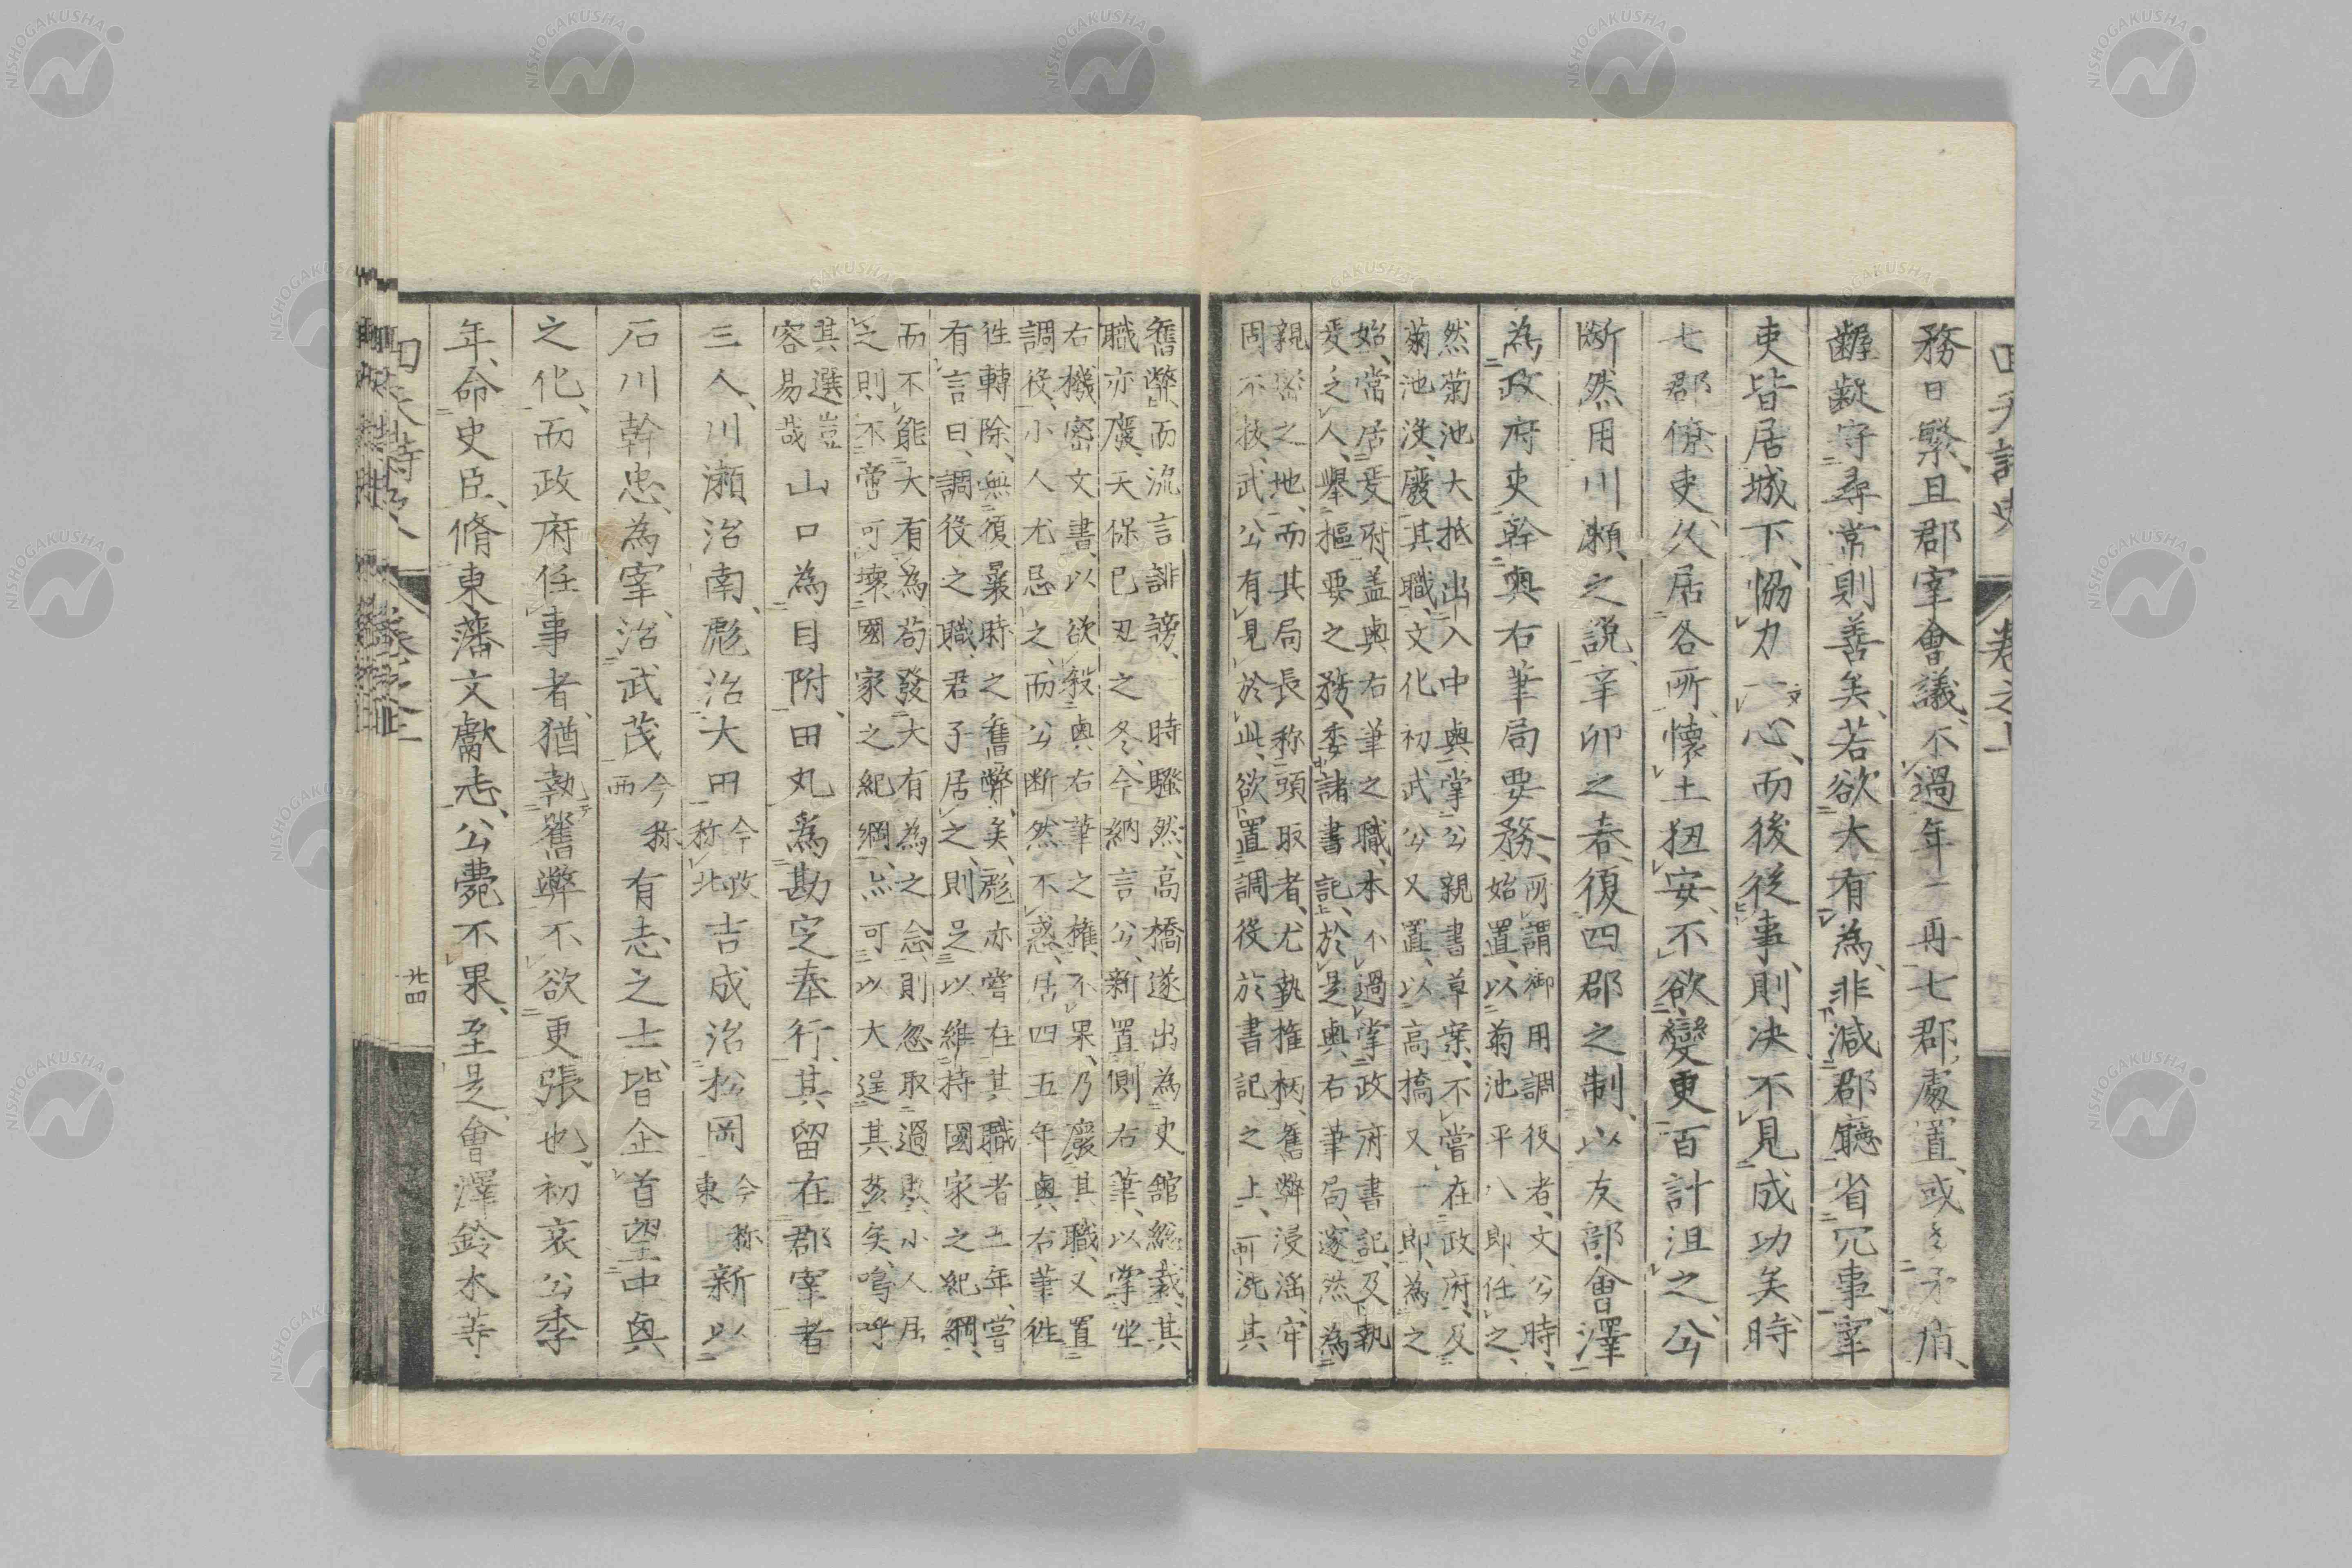 務日繁、且郡宰會議、不過年一再、七郡處置、或多矛楯、
齷齪守尋常則善矣、若欲大有為、非減郡廳省冗事、宰
吏皆居城下、恊力一心、而後從事、則決不見成功矣、時
七郡僚吏、久居各所、懷土狃安、不欲變更、百計沮之、公
斷然用川瀬之說、辛卯之春、復四郡之制、以友部會澤
為政府吏、幹與右筆局要務、
所謂御用調役者、文公時、
始置、以菊池平八郎、任之、
然菊池大抵出入中奥、掌公親書草案、不嘗在政府、及
菊池沒、廢其職、文化初武公又置、以高橋又一郎、為之
始、常居炭府、盖奥右筆之職、本不過掌政府書記、及執
炭之人、舉樞要之務、委諸書記、於是奥右筆局、遂然為
親密之地、而其局長称頭取者、尤執権柄、舊弊浸滛、牢
固不拔、武公有見於此、欲置調役於書記之上、而洗其
舊弊、而流言誹謗、時騷然、高橋遂出為史館総裁、其
職亦廢、天保已丑之冬、今納言公、新置側右筆、以掌坐
右機密文書、以欲殺奥右筆之権、不果、乃廢其職、又置
調役、小人尤忌之、而公断然不惑、居四五年、奥右筆徃
徃轉除、無復曩時之舊弊矣、彪亦嘗在其職者五年、嘗
有言曰、調役之職、君子居之、則足以維持國家之紀綱、
而不能大有為、苟發大有為之念、則忽取過敗、小人居
之則不啻可壊國家之紀綱、亦可以大逞其姦矣、嗚呼
其選豈
容易哉
山口為目附、田丸為勘定奉行、其留在郡宰者
三人、川瀬治南、彪治大田
今改
称北
吉成治松岡
今称
東
新以
石川幹忠、為宰、治武茂
今称
西
有志之士、皆企首望中興
之化、而政府任事者、猶執舊弊不欲更張也、初哀公季
年、命史臣、脩東藩文獻志、公薨不果、至是、會澤鈴木等
廿四